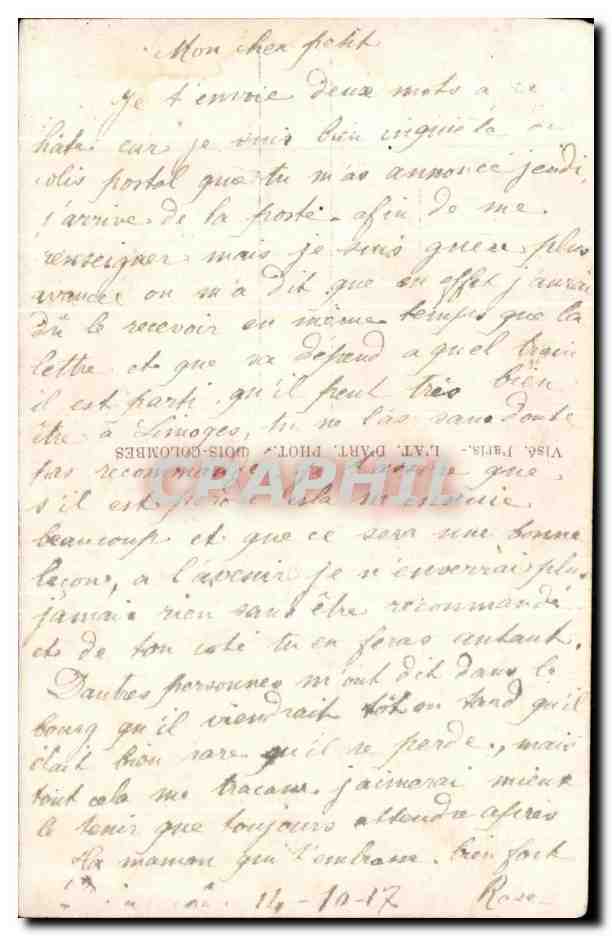 Mon cher petit
Je t'envoie deux mots a
hâte car je suis bien inquiete
colis postal que tu m'as annoncé jeudi,
j'arrive de la poste afin de me
renseigner mais je suis guere plus
avancée on m'a dit que en effet j'aurai
dû le recevoir en même temps que la
lettre et que sa dépend a quel train
il est parti qu'il peut très bien
être à Limoges, tu ne l'as sans doute
Visé, Paris. L'AT. D'ART. PHOT. BOIS-COLOMBES
pas recommandé que
s'il est perdu cela m'ennuie
beaucoup et que ce sera une bonne
leçon, a l'avenir je n'enverrai plus
jamais rien sans être recommandé
et de ton coté tu en feras autant.
Dautres personnes m'ont dit dans le
bourg qu'il viendrait tôt ou tard qu'il
était bien rare qu'il se perde, mais
tout cela me tracasse j'aimerai mieux
le tenir que toujours attendre après
Ta maman qui t'embrasse bien fort
14-10-17 Rose
CPAPHIL